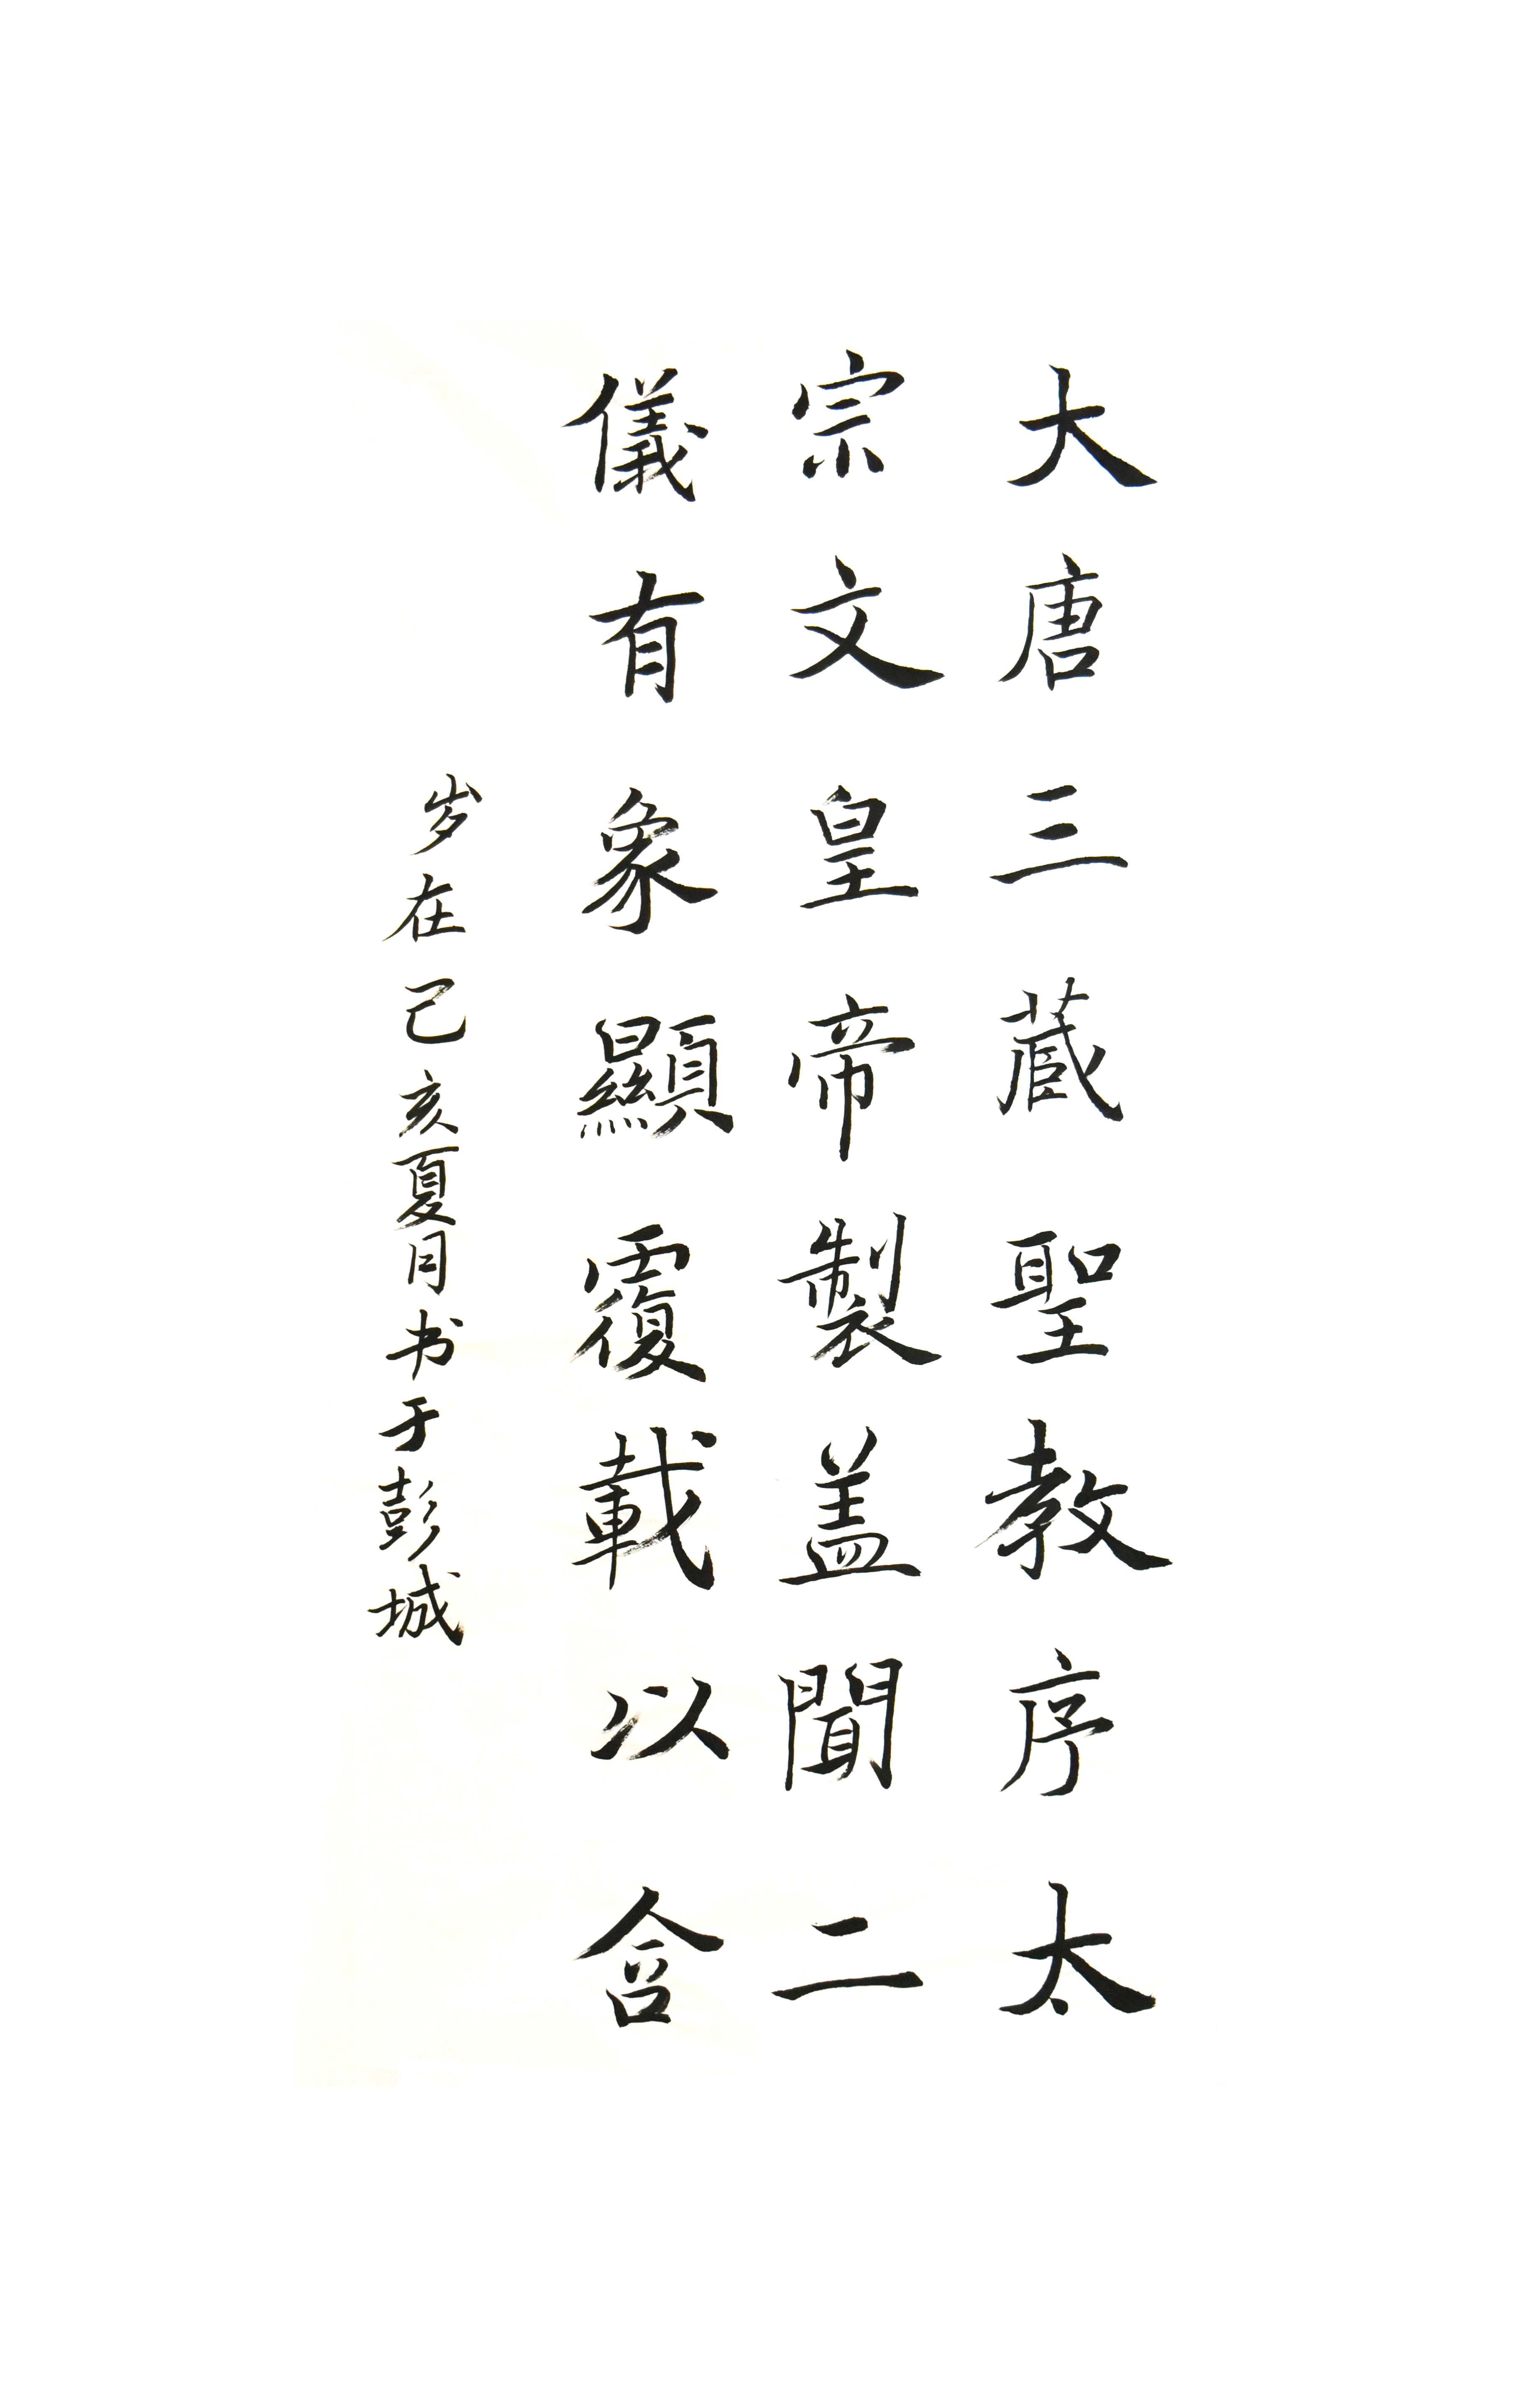 大唐三蔵聖教序太
宗文皇帝製盖聞二
儀有象顯覆載以含
岁在己亥夏月书于彭城